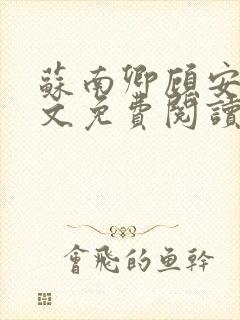 蘇南卿顾安
文免費閱讀
會飛的鱼幹